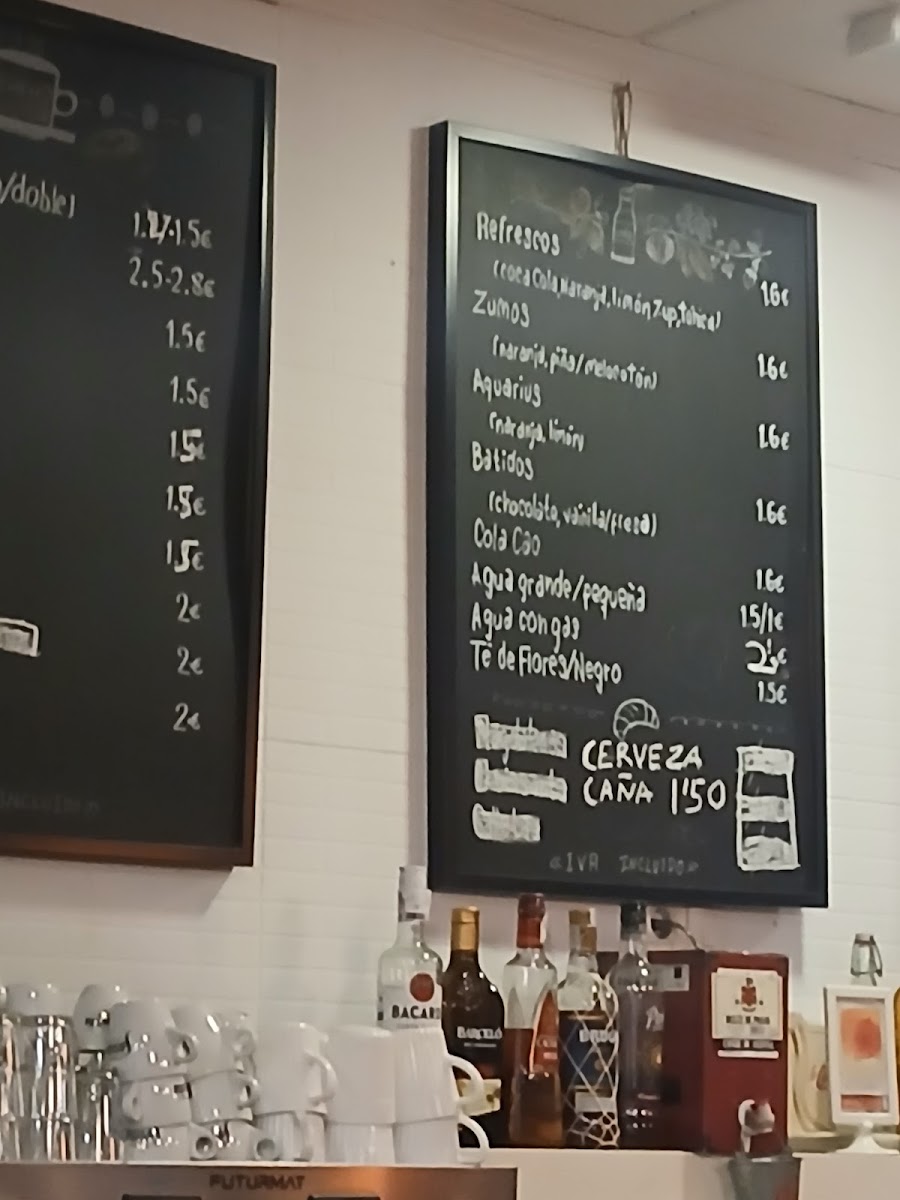 /doble)
1.2/1.5€
2.5-2.8€
1.5€
1.5€
1.5€
1.5€
1.5€
2€
2€
2€
Refrescos 1.6€
(coca Cola, Naranja, limón, 7up, tónica)
Zumos 1.6€
(naranja, piña/melocotón)
Aquarius 1.6€
(naranja, limón)
Batidos 1.6€
(chocolate, vainilla/fresa)
Cola Cao 1.6€
Agua grande/pequeña 1.5/1€
Agua con gas 2€
Té de Flores/Negro 1.5€
CERVEZA
CAÑA 1'50
«IVA INCLUIDO»
BACARDI
BARCELÓ
FUTURMAT